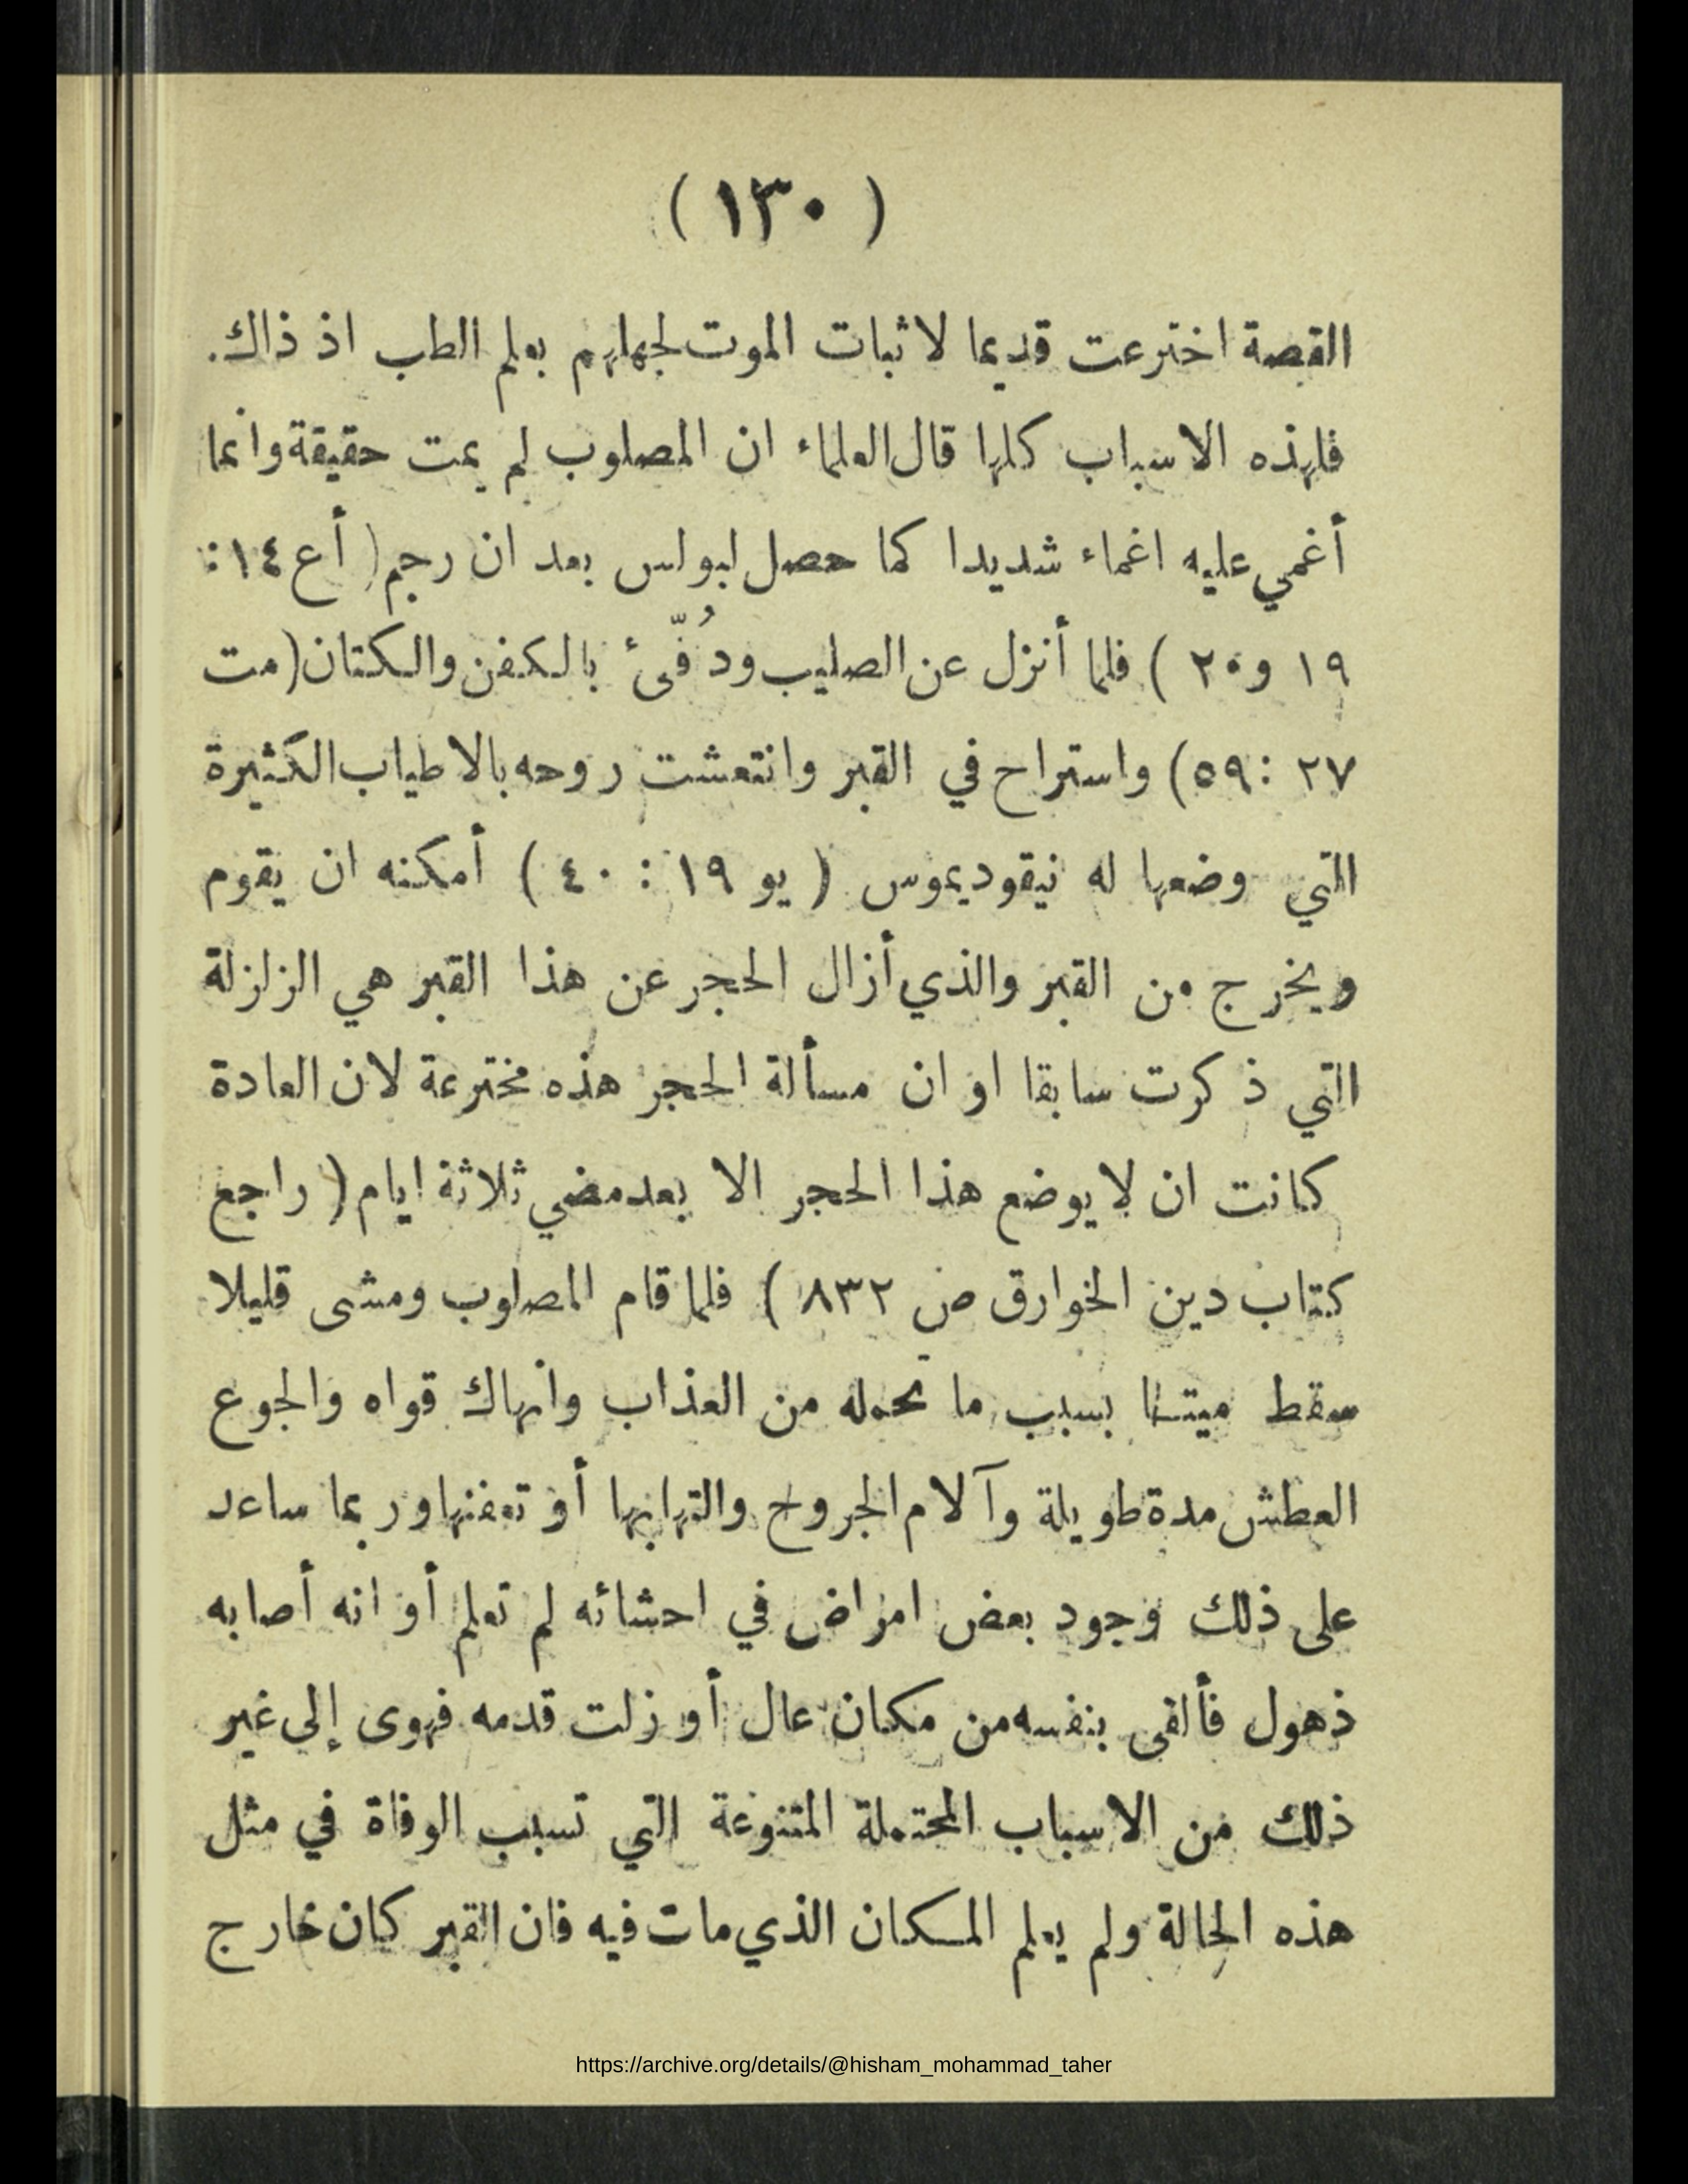 ( ١٣٠ )
القصة اخترعت قديما لاثبات الموت لجهلهم بعلم الطب اذ ذاك.
فلهذه الاسباب كلها قال العلماء ان المصلوب لم يمت حقيقة وانما
أغمي عليه اغماء شديدا كما حصل لبولس بعد ان رجم ( أع ١٤ :
١٩ و٢٠ ) فلما أنزل عن الصليب ودُفّئ بالكفن والكتان ( مت
٢٧ : ٥٩ ) واستراح في القبر وانتعشت روحه بالاطياب الكثيرة
التي وضعها له نيقوديموس ( يو ١٩ : ٤٠ ) أمكنه ان يقوم
ويخرج من القبر والذي أزال الحجر عن هذا القبر هي الزلزلة
التي ذكرت سابقا او ان مسألة الحجر هذه مخترعة لان العادة
كانت ان لا يوضع هذا الحجر الا بعد مضي ثلاثة ايام ( راجع
كتاب دين الخوارق ص ٨٣٢ ) فلما قام المصلوب ومشى قليلا
سقط ميتا بسبب ما تحمله من العذاب وانهاك قواه والجوع
العطش مدة طويلة وآلام الجروح والتهابها أو تعفنها وربما ساعد
على ذلك وجود بعض امراض في احشائه لم تعلم أو انه أصابه
ذهول فألقى بنفسه من مكان عال أو زلت قدمه فهوى إلى غير
ذلك من الاسباب المحتملة المتنوعة التي تسبب الوفاة في مثل
هذه الحالة ولم يعلم المكان الذي مات فيه فان القبر كان خارج
https://archive.org/details/@hisham_mohammad_taher